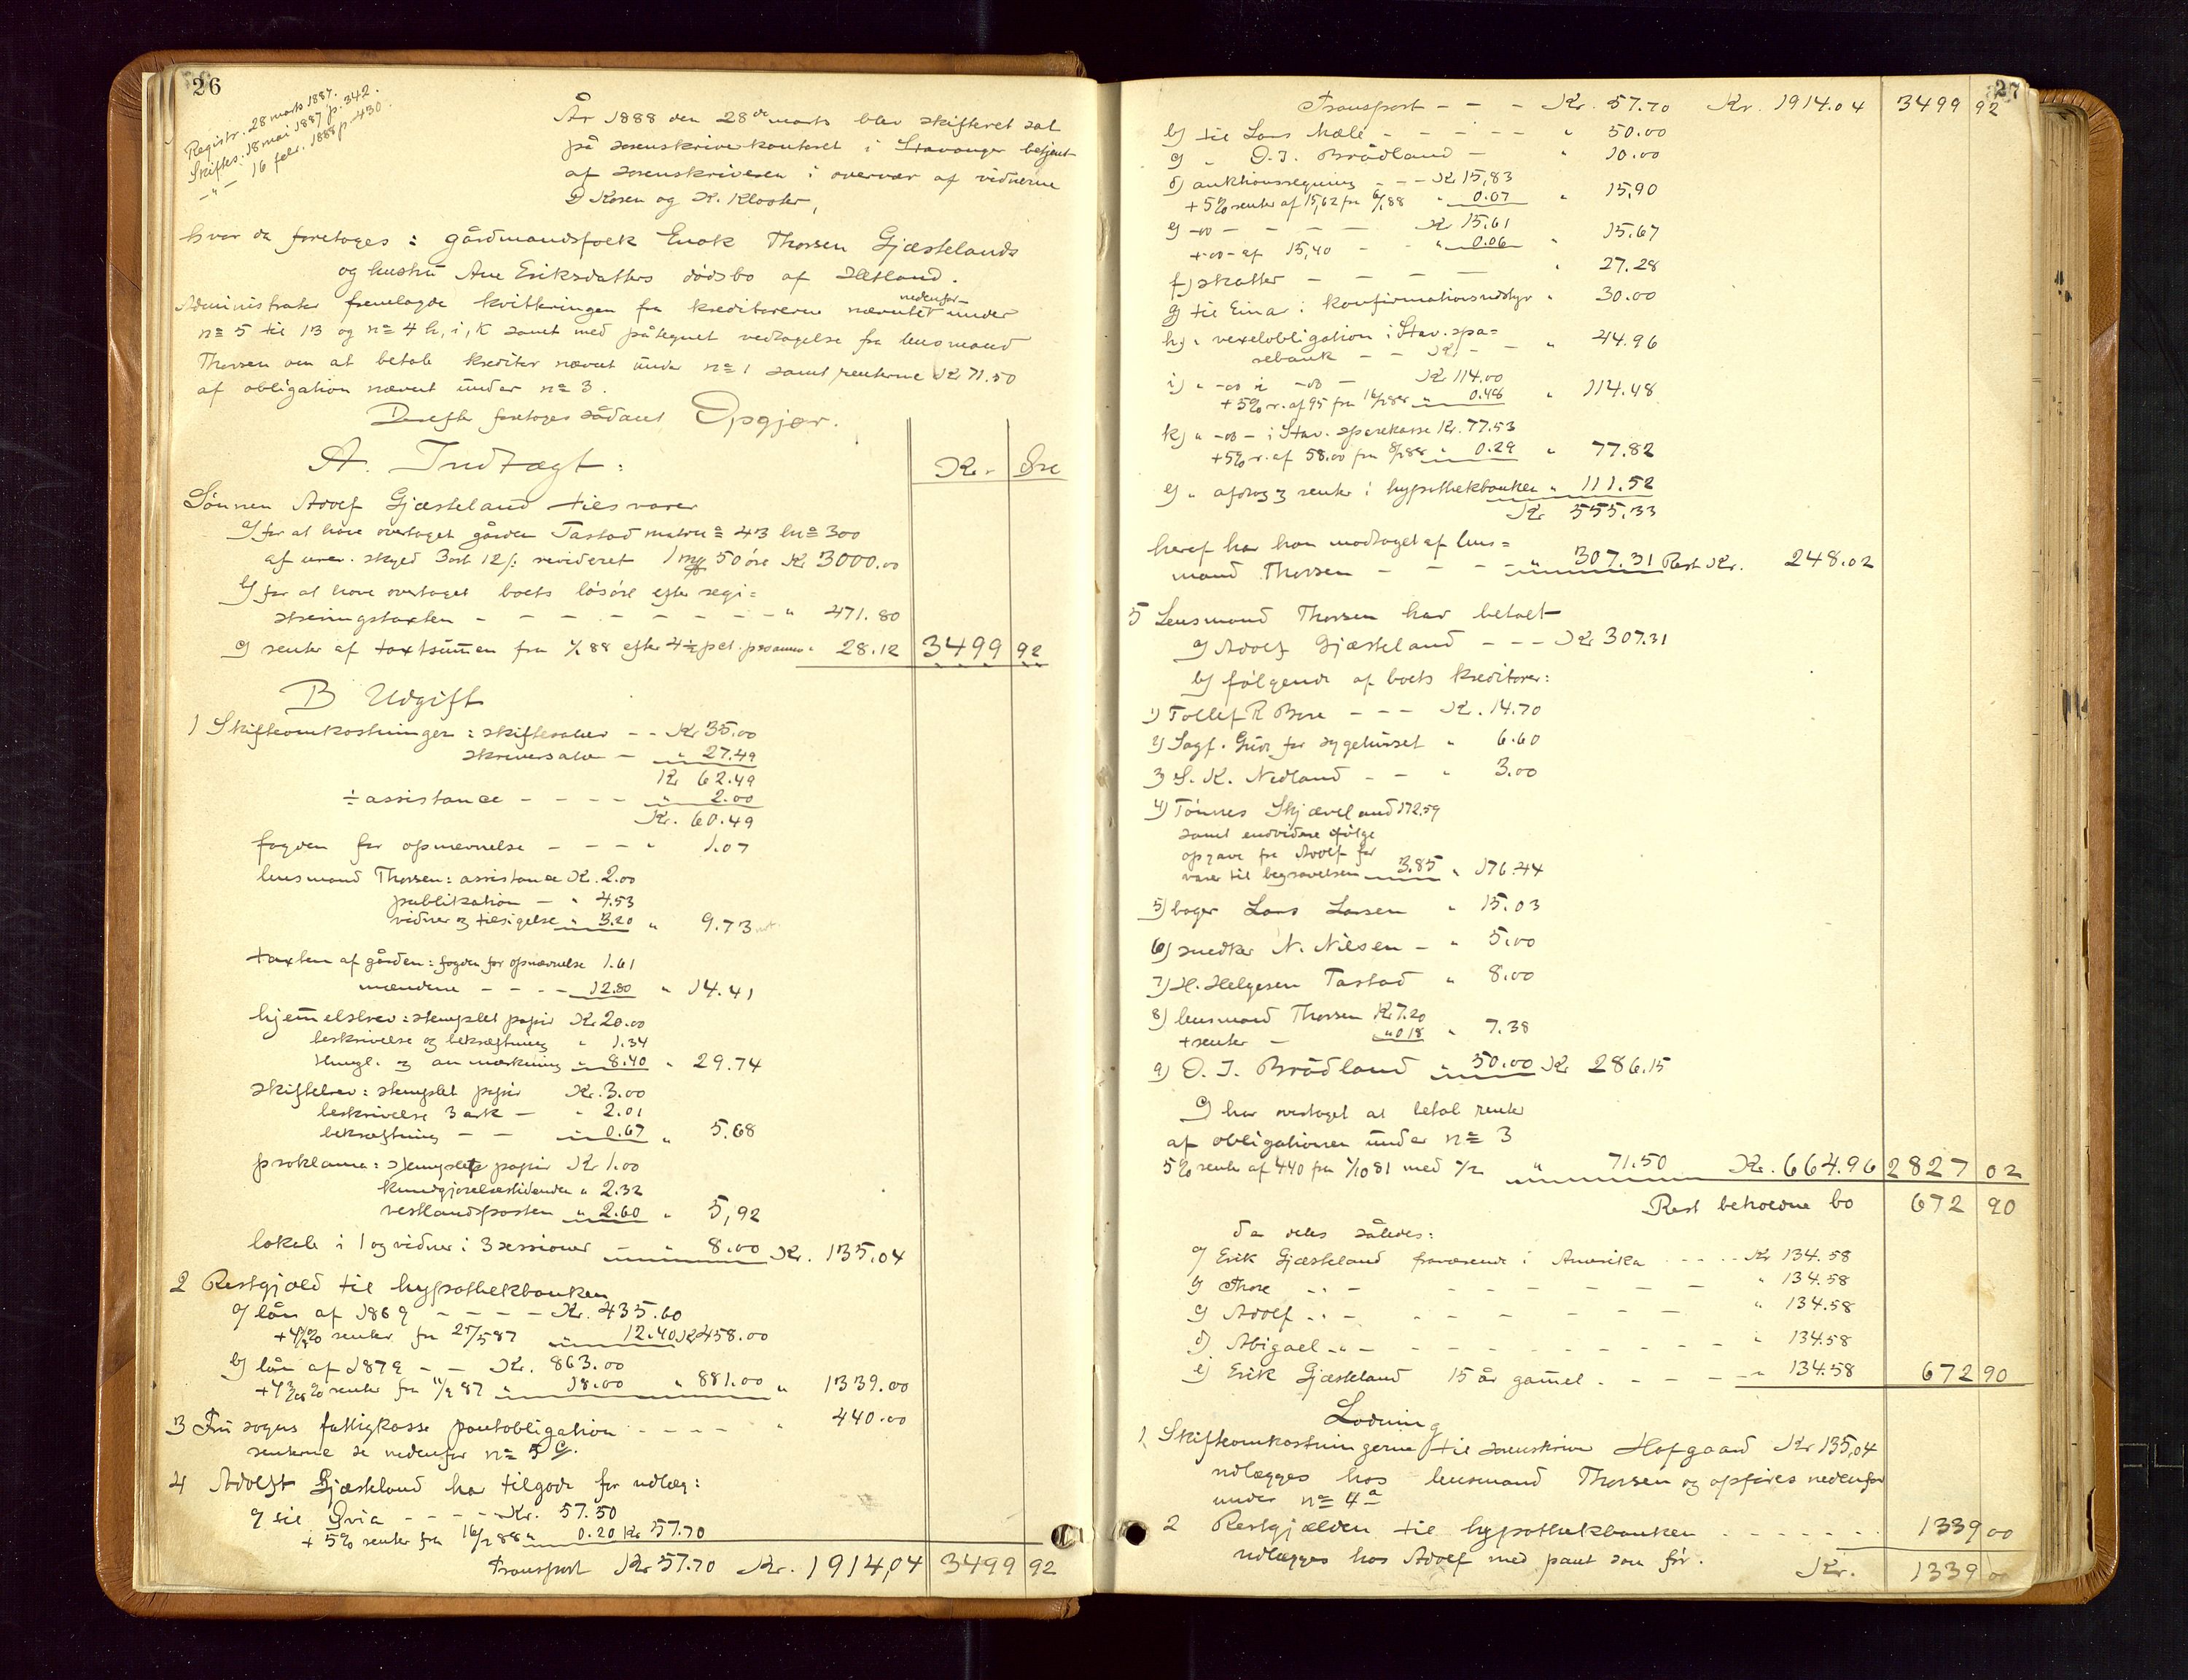 26
Registr. 28 marts 1887.
Skiftes. 18 mai 1887 p. 342.
-"- 16 febr. 1888 p. 430
År 1888 den 28de marts blev skifteret sat
på sorenskriverkontoret i Stavanger betjent
af sorenskriveren i overvær af vidnerne
D Kosen og K. Kloster,
hvor da foretoges: gårdmandsfolk Enok Thorsen Gjæstelands
og hustru Ane Eriksdatters dødsbo af Hetland.
Administrator fremlagde kvitteringer fra kreditorerne nævnte nedenfor under
n= 5 til 13 og n= 4 h, i, k samt med påtegnet vedtagelse fra lensmand
Thorsen om at betale krediter nævnt under n= 1 samt renterne Kr 71.50
af obligation nævnt under n= 3.
Derefter foretoges sådant Opgjør.
A. Indtægt:
Kr. Øre
Sønnen Adolf Gjæsteland tilsvarer
a) for at have overtaget gården Tastad matrn= 43 ln= 300
af urev. skyld 3 ort 12 /: revideret 1 mrk 50 øre Kr 3000.00
b) for at have overtaget boets løsøre efter regi=
streringstaxten - - - - - - - " 471.80
c) renter af taxtsummen fra 1/1 88 efter 4½ pct. pro anno " 28.12 3499 92
B Udgift
1 Skifteomkostninger: skiftesalær - - Kr 35.00
skriversalær - " 27.49
Kr 62.49
÷ assistance - - - - " 2.00
Kr. 60.49
fogden for opnævnelse - - - " 1.07
lensmand Thorsen: assistance Kr. 2.00
publikation - " 4.53
vidner og tilsigelse " 3.20 " 9.73
taxten af gården: fogden for opnævnelse 1.61
mændene - - - 12.80 " 14.41
hjemmelsbrev: stemplet papir Kr 20.00
beskrivelse og bekræftning " 1.34
thingl. og anmærkning " 8.40 " 29.74
skiftebrev: stemplet papir Kr. 3.00
beskrivelse 3 ark - " 2.01
bekræftning - - " 0.67 " 5.68
proklama: stemplet papir Kr 1.00
kundgjørelsestidende " 2.32
vestlandsposten " 2.60 " 5,92
lokale i 1 og vidner i 3 sessioner - " 8.00 Kr. 135.04
2 Restgjæld til hypothekbanken
a) lån af 1869 - - - - Kr. 435.60
+ 4½% renter fra 25/5 87 " 12.40 Kr 458.00
b) lån af 1879 - - Kr. 863.00
renter fra 11/9 87 " 18.00 " 881.00 " 1339.00
3 Fru sogns fattigkasse pantobligation - - - - " 440.00
renterne se nedenfor n= 5 c.
4 Adolf Gjæsteland har tilgode for udlæg:
a) til Qvia - - - - Kr. 57.50
+ 5% renter fra 16/2 88 " 0.20 Kr 57.70
Transport Kr 57.70 Kr. 1914,04 3499 92
27
Transport - - - Kr. 57.70 Kr. 1914.04 3499 92
b) til Lars Mæle - - - - - " 50.00
c) " O. I. Brådland - " 10.00
d) auktionsregning - - - Kr 15,83
+ 5% renter af 15,62 fra 6/2 88 " 0.07 " 15,90
e) -"- - - - - Kr 15.61
+ -"- af 15,40 - - " 0.06 " 15.67
f) skatter - - - - " 27.28
g) til Einar i konfirmationsudstyr " 30.00
h) " vexelobligation i Stav. spa=
rebank - - Kr - - " 44.96
i) " -"- i -"- - Kr 114.00
+ 5% r. af 95 fra 16/2 88 " 0.48 " 114.48
k) " -"- i Stav. sparekasse Kr. 77.53
+ 5% r. af 58.00 fra 8/2 88 " 0.29 " 77.82
l) " afdrag og renter i hypothekbanken " 111.52
Kr 555.33
heraf har han modtaget af lens=
mand Thorsen - - - - " 307.31 Rest Kr. 248.02
5 Lensmand Thorsen har betalt
a) Adolf Gjæsteland - - - Kr 307.31
b) følgende af boets kreditorer:
1) Tollef R Bore - - - Kr. 14.70
2) Sagf. Gude for sygehuset " 6.60
3) S. K. Nedland - - " 3.00
4) Tønnes Skjæveland 172.59
samt endvidere ifølge
opgave fra Adolf for
varer til begravelsen 3.85 " 176.44
5) bager Lars Larsen " 15.03
6) snedker N. Nilsen - " 5.00
7) H. Helgesen Tastad " 8.00
8) lensmand Thorsen Kr 7.20
+ renter - " 0 18 " 7.38
9) O. I. Brådland " 50.00 Kr 286.15
c) har overtaget at betale renter
af obligationen under n= 3
5% renter af 440 fra 1/10 81 med " 71.50 Kr. 664.96 2827 02
Rest beholdne bo 672 90
da deles således:
a) Erik Gjæsteland fraværende i Amerika - - - - Kr 134.58
b) Thore -"- - - - - - - " 134.58
c) Adolf -"- - - - - - - " 134.58
d) Abigael -"- - - - - - - - " 134.58
e) Erik Gjæsteland 15 år gammel - - - - " 134.58 672 90
Lodning
1, Skifteomkostningerne til sorenskriver Hofgaard Kr 135,04
udlægges hos lensmand Thorsen og opføres nedenfor
under n= 4 a
2 Restgjælden til hypothekbanken - - - - - - 1339 00
udlægges hos Adolf med pant som før.
Kr. 1339 00